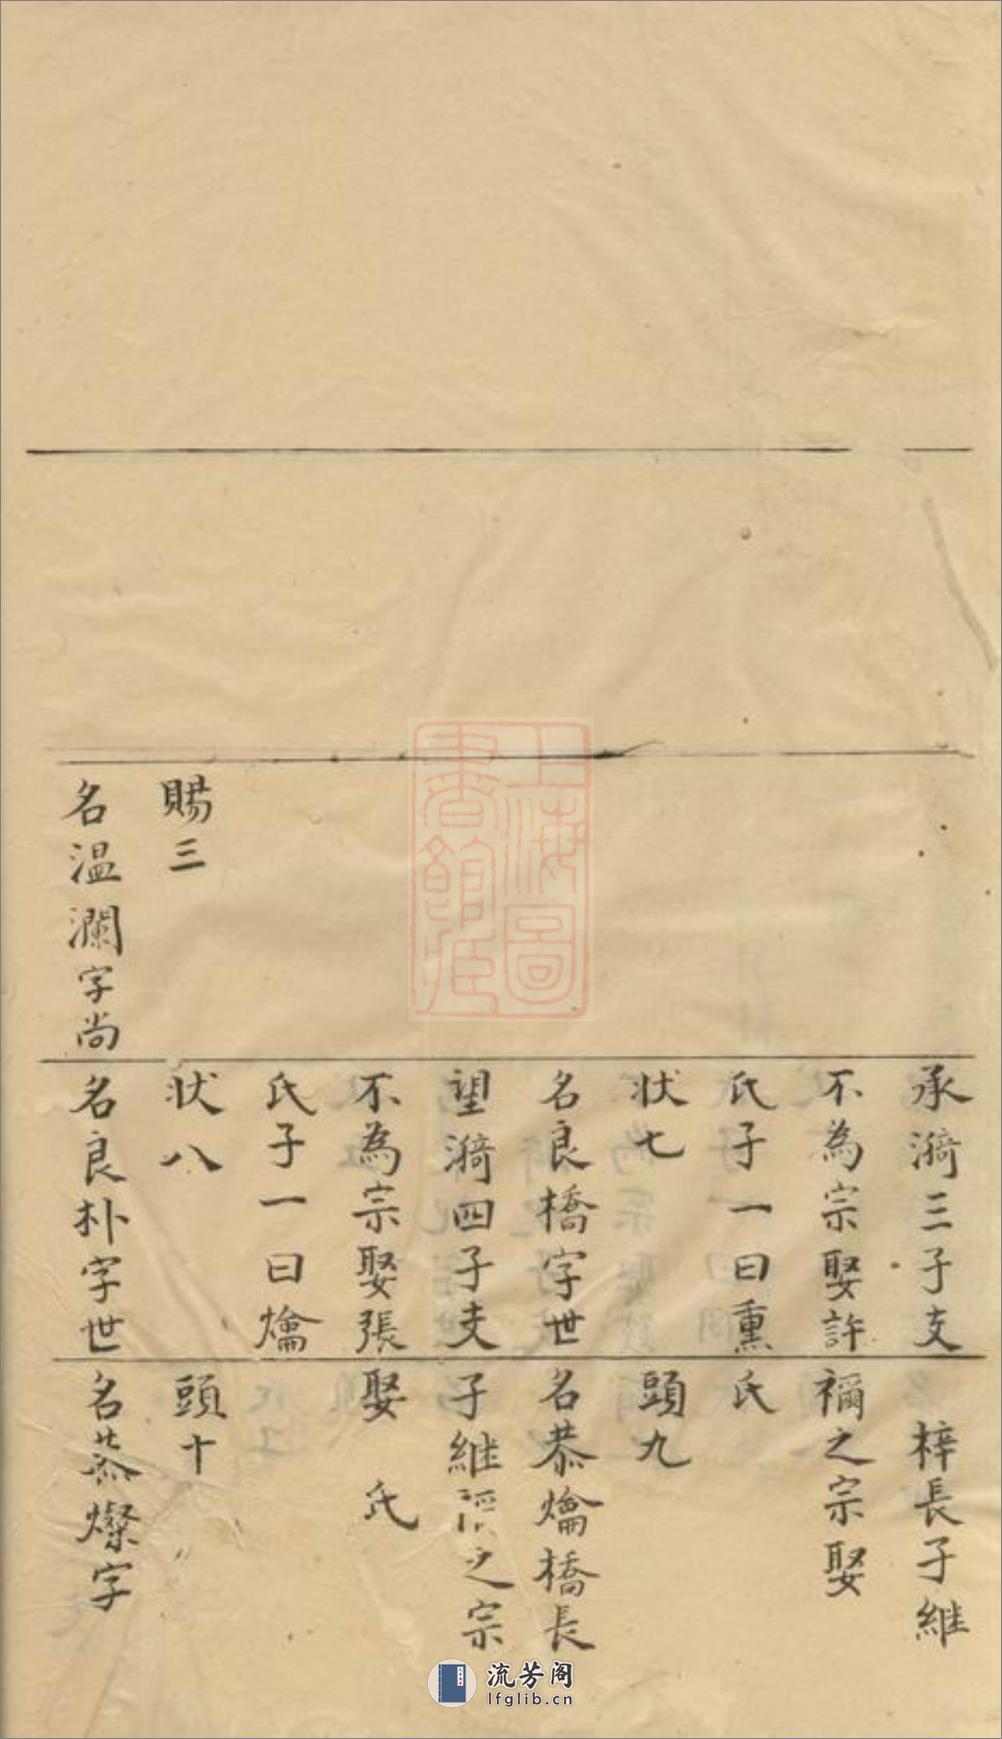 賜三
名温瀾字尚
承漪三子支
不為宗娶許
氏子一曰熏
狀七
名良橋字世
望漪四子支
不為宗娶張
氏子一曰爚
狀八
名良朴字世
梓長子継
禰之宗娶
氏
頭九
名恭爚橋長
子継之宗
娶 氏
頭十
名恭燦字
上海圖
書館藏
流芳阁
lfglib.cn